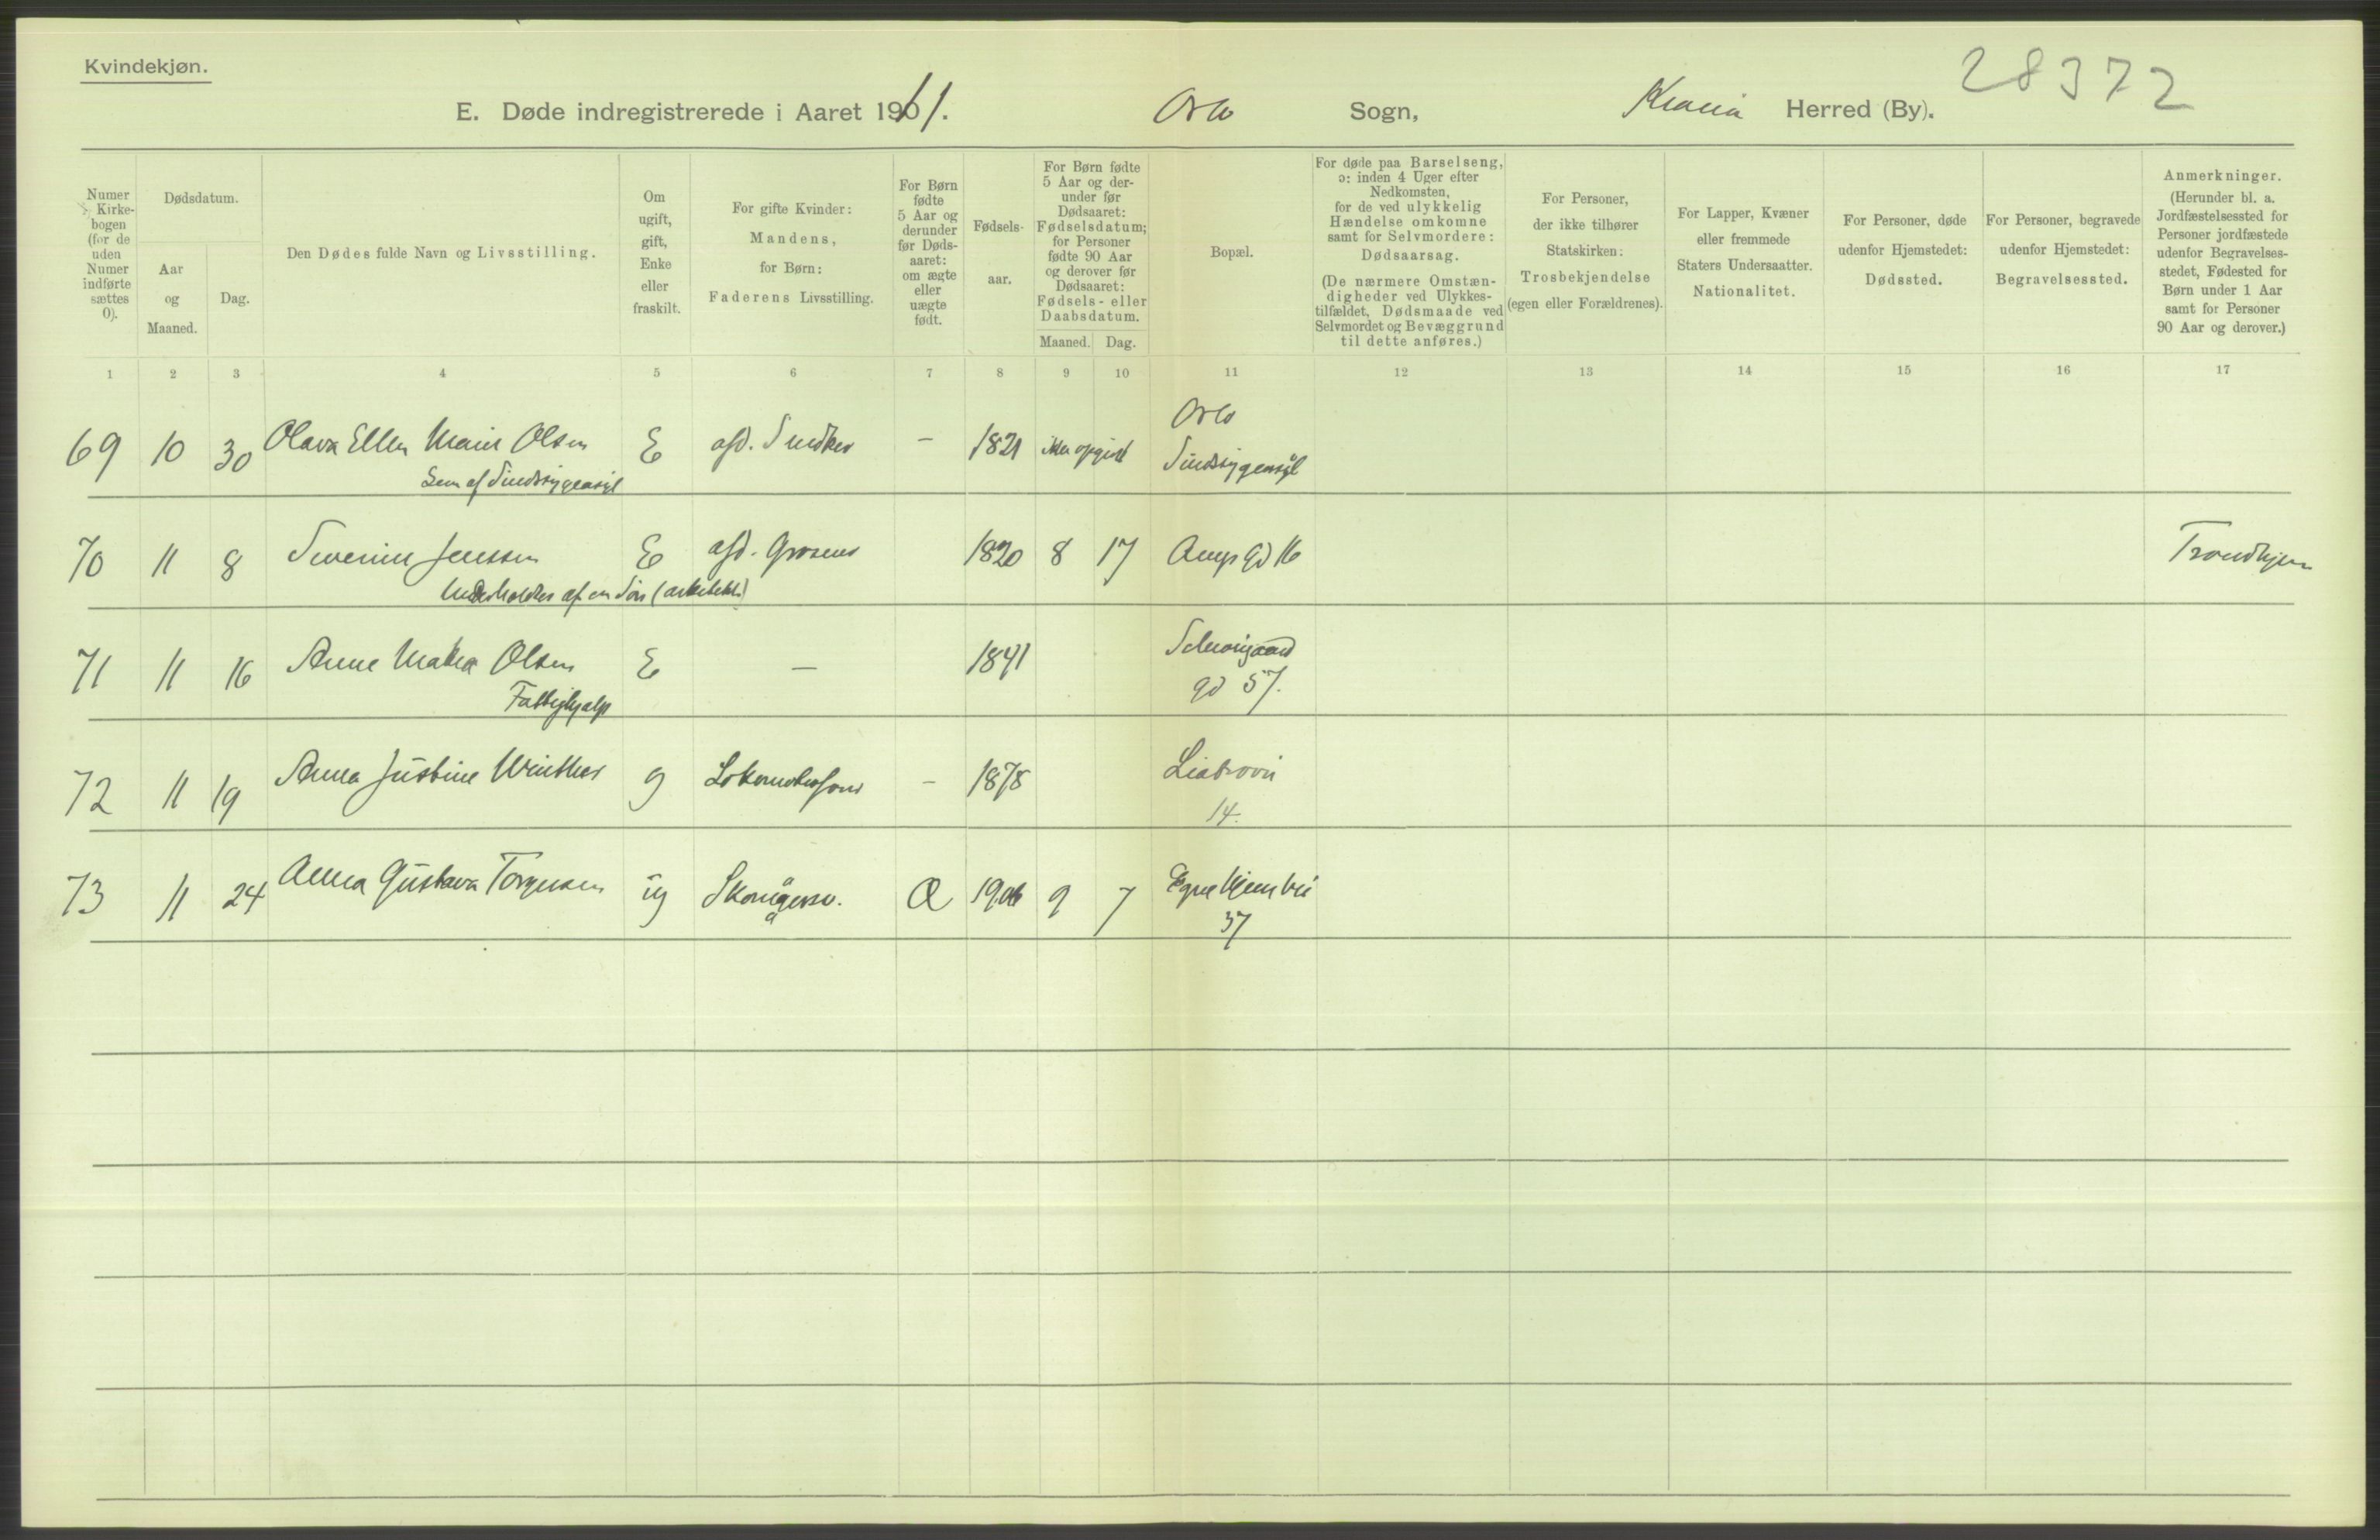 Kvindekjøn.
28372
E. Døde indregistrerede i Aaret 1911. Oslo Sogn, Kr.ania Herred (By).
Numer i Kirkebogen (for de uden Numer indførte sættes 0).
Dødsdatum.
Aar og Maaned.
Dag.
Den Dødes fulde Navn og Livsstilling.
Om ugift, gift, Enke eller fraskilt.
For gifte Kvinder: Mandens, for Børn: Faderens Livsstilling.
For Børn fødte 5 Aar og derunder før Dødsaaret: om ægte eller uægte født.
Fødselsaar.
For Børn fødte 5 Aar og derunder før Dødsaaret: Fødselsdatum; for Personer fødte 90 Aar og derover før Dødsaaret: Fødsels- eller Daabsdatum.
Maaned. Dag.
Bopæl.
For døde paa Barselseng, ɔ: inden 4 Uger efter Nedkomsten, for de ved ulykkelig Hændelse omkomne samt for Selvmordere: Dødsaarsag.
(De nærmere Omstændigheder ved Ulykkestilfældet, Dødsmaade ved Selvmordet og Bevæggrund til dette anføres.)
For Personer, der ikke tilhører Statskirken: Trosbekjendelse (egen eller Forældrenes).
For Lapper, Kvæner eller fremmede Staters Undersaatter. Nationalitet.
For Personer, døde udenfor Hjemstedet: Dødssted.
For Personer, begravede udenfor Hjemstedet: Begravelsessted.
Anmerkninger.
(Herunder bl. a. Jordfæstelsessted for Personer jordfæstede udenfor Begravelsesstedet, Fødested for Børn under 1 Aar samt for Personer 90 Aar og derover.)
1 2 3 4 5 6 7 8 9 10 11 12 13 14 15 16 17
69 10 30 Olava Ellen Marie Olsen E afd. Snedker – 1821 ikke opgivet Oslo Sindssygeasyl
Lem af Sindssygeasyl
70 11 8 Severine Jenssen E afd. Grosserer 1820 8 17 Amps gd 16 Trondhjem
Underholdes af en Søn (arkitekt)
71 11 16 Anne Olsen E – 1841 Schweigaard
gd 57.
Fattighjælp
72 11 19 Anna Justine Winther g – 1878 Liabrovei
14.
73 11 24 Anna Gustava Torgersen ug Æ 1906 9 7 Egne Hjem vei
37